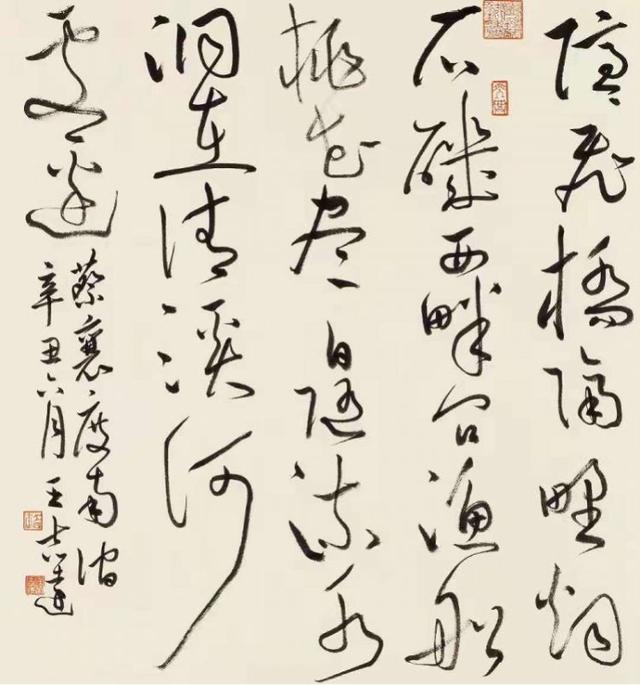 隱〻飛橋隔野烟
石磯西畔问漁船
桃花尽日随流水
洞在清溪何
處邊
蔡襄度南澗
辛丑六月 王